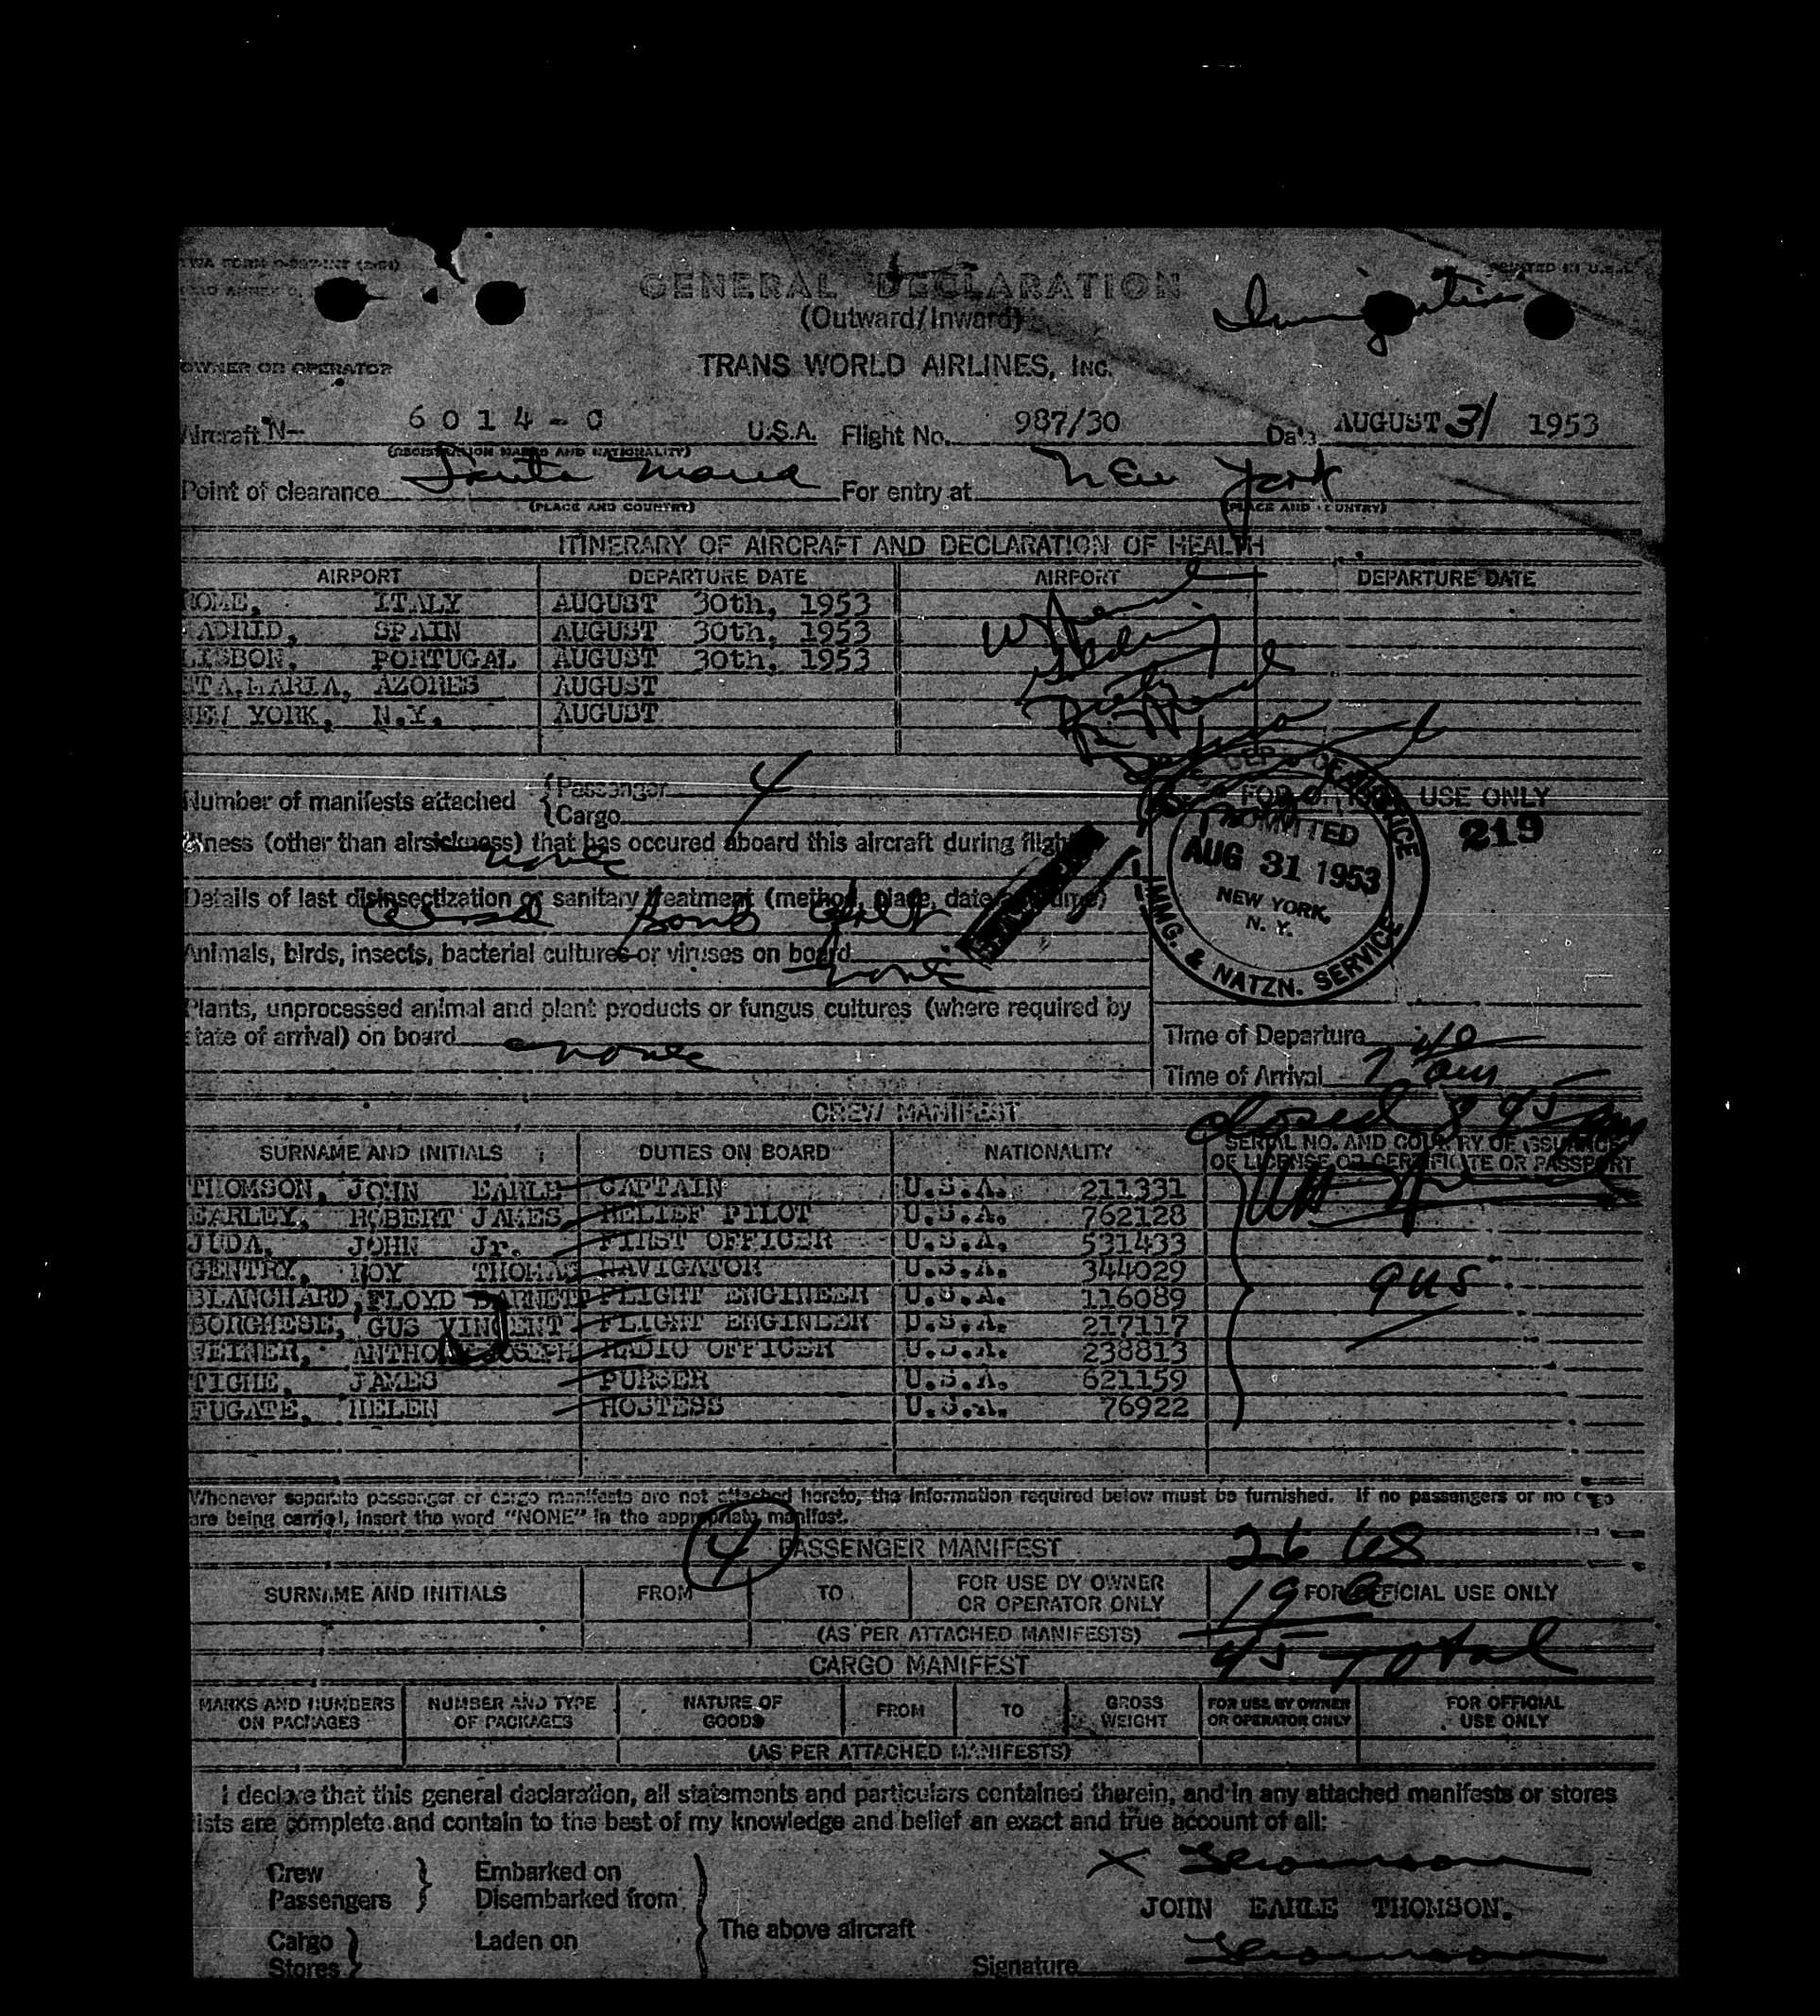 GENERAL DECLARATION
(Outward/Inward)
PRINTED IN U.S.A.
Immigration
OWNER OR OPERATOR
TRANS WORLD AIRLINES, INC.
Aircraft N- 6014-C U.S.A. Flight No. 987/30 Date AUGUST 31 1953
(REGISTRATION MARKS AND NATIONALITY)
Point of clearance Santa Maria For entry at New York
(PLACE AND COUNTRY) (PLACE AND COUNTRY)
ITINERARY OF AIRCRAFT AND DECLARATION OF HEALTH
AIRPORT DEPARTURE DATE AIRPORT DEPARTURE DATE
ROME, ITALY AUGUST 30th, 1953
MADRID, SPAIN AUGUST 30th, 1953
LISBON, PORTUGAL AUGUST 30th, 1953
STA.MARIA, AZORES AUGUST
NEW YORK, N.Y. AUGUST
Number of manifests attached {Passenger 4
{Cargo
FOR OFFICIAL USE ONLY
219
Illness (other than airsickness) that has occured aboard this aircraft during flight
none
DEPT. OF JUSTICE
ADMITTED
AUG 31 1953
NEW YORK,
N. Y.
IMMG. & NATZN. SERVICE
Details of last disinsectization or sanitary treatment (method, place, date and time)
Animals, birds, insects, bacterial cultures or viruses on board
none
Plants, unprocessed animal and plant products or fungus cultures (where required by
state of arrival) on board none
Time of Departure
Time of Arrival 7 40 am
closed 8 45 am
CREW MANIFEST
SURNAME AND INITIALS DUTIES ON BOARD NATIONALITY SERIAL NO. AND COUNTRY OF ISSUANCE
OF LICENSE OR CERTIFICATE OR PASSPORT
THOMSON, JOHN EARLE CAPTAIN U.S.A. 211331
EARLEY, ROBERT JAMES RELIEF PILOT U.S.A. 762128
JUDA, JOHN Jr. FIRST OFFICER U.S.A. 531433
GENTRY, ROY THOMAS NAVIGATOR U.S.A. 344029
BLANCHARD, FLOYD BARNETT FLIGHT ENGINEER U.S.A. 116089
BORGHESE, GUS VINCENT FLIGHT ENGINEER U.S.A. 217117
WEINER, ANTHONY JOSEPH RADIO OFFICER U.S.A. 238813
TIGHE, JAMES PURSER U.S.A. 621159
FUGATE, HELEN HOSTESS U.S.A. 76922
9 US
Whenever separate passenger or cargo manifests are not attached hereto, the information required below must be furnished. If no passengers or no cargo
are being carried, insert the word "NONE" in the appropriate manifest.
4 PASSENGER MANIFEST 26 US
SURNAME AND INITIALS FROM TO FOR USE BY OWNER
OR OPERATOR ONLY FOR OFFICIAL USE ONLY
19 a
(AS PER ATTACHED MANIFESTS)
45 Total
CARGO MANIFEST
MARKS AND NUMBERS
ON PACKAGES NUMBER AND TYPE
OF PACKAGES NATURE OF
GOODS FROM TO GROSS
WEIGHT FOR USE BY OWNER
OR OPERATOR ONLY FOR OFFICIAL
USE ONLY
(AS PER ATTACHED MANIFESTS)
I declare that this general declaration, all statements and particulars contained therein, and in any attached manifests or stores
lists are complete and contain to the best of my knowledge and belief an exact and true account of all:
Crew
Passengers } Embarked on
Disembarked from
Cargo
Stores } Laden on
} The above aircraft
X
JOHN EARLE THOMSON.
Signature